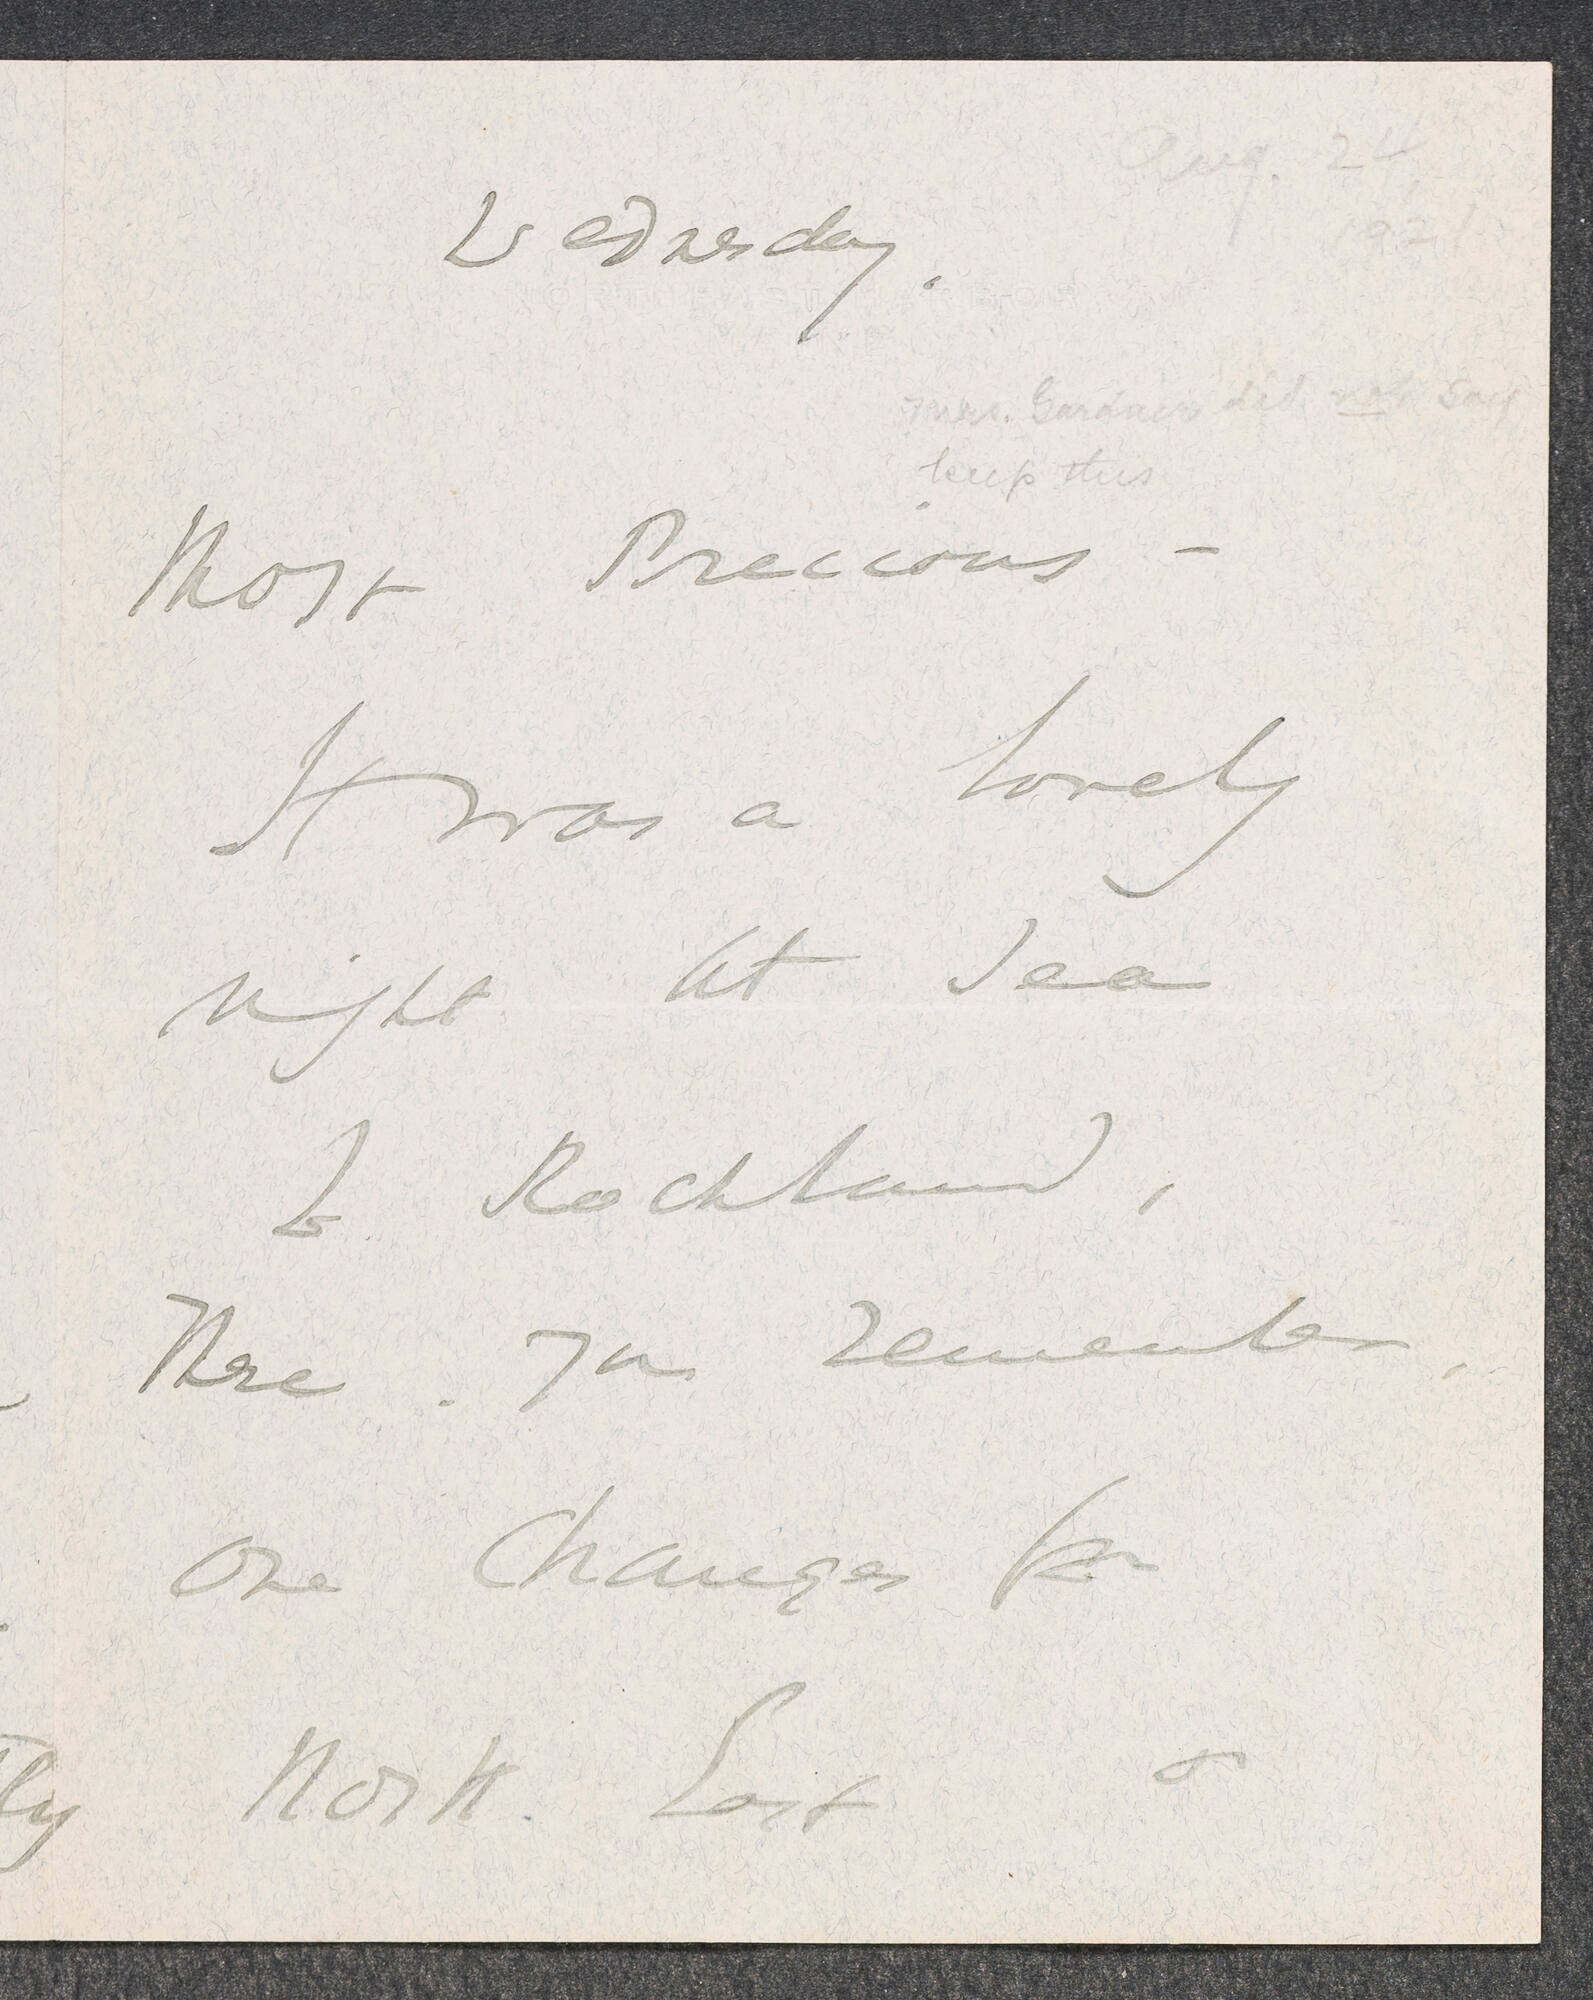 Aug. 24
1921
Wednesday.
Mrs. Gardner did not say
keep this
Most Precious -
It was a lovely
night at Sea
to Rockland,
There you remember,
one changes for
North East &